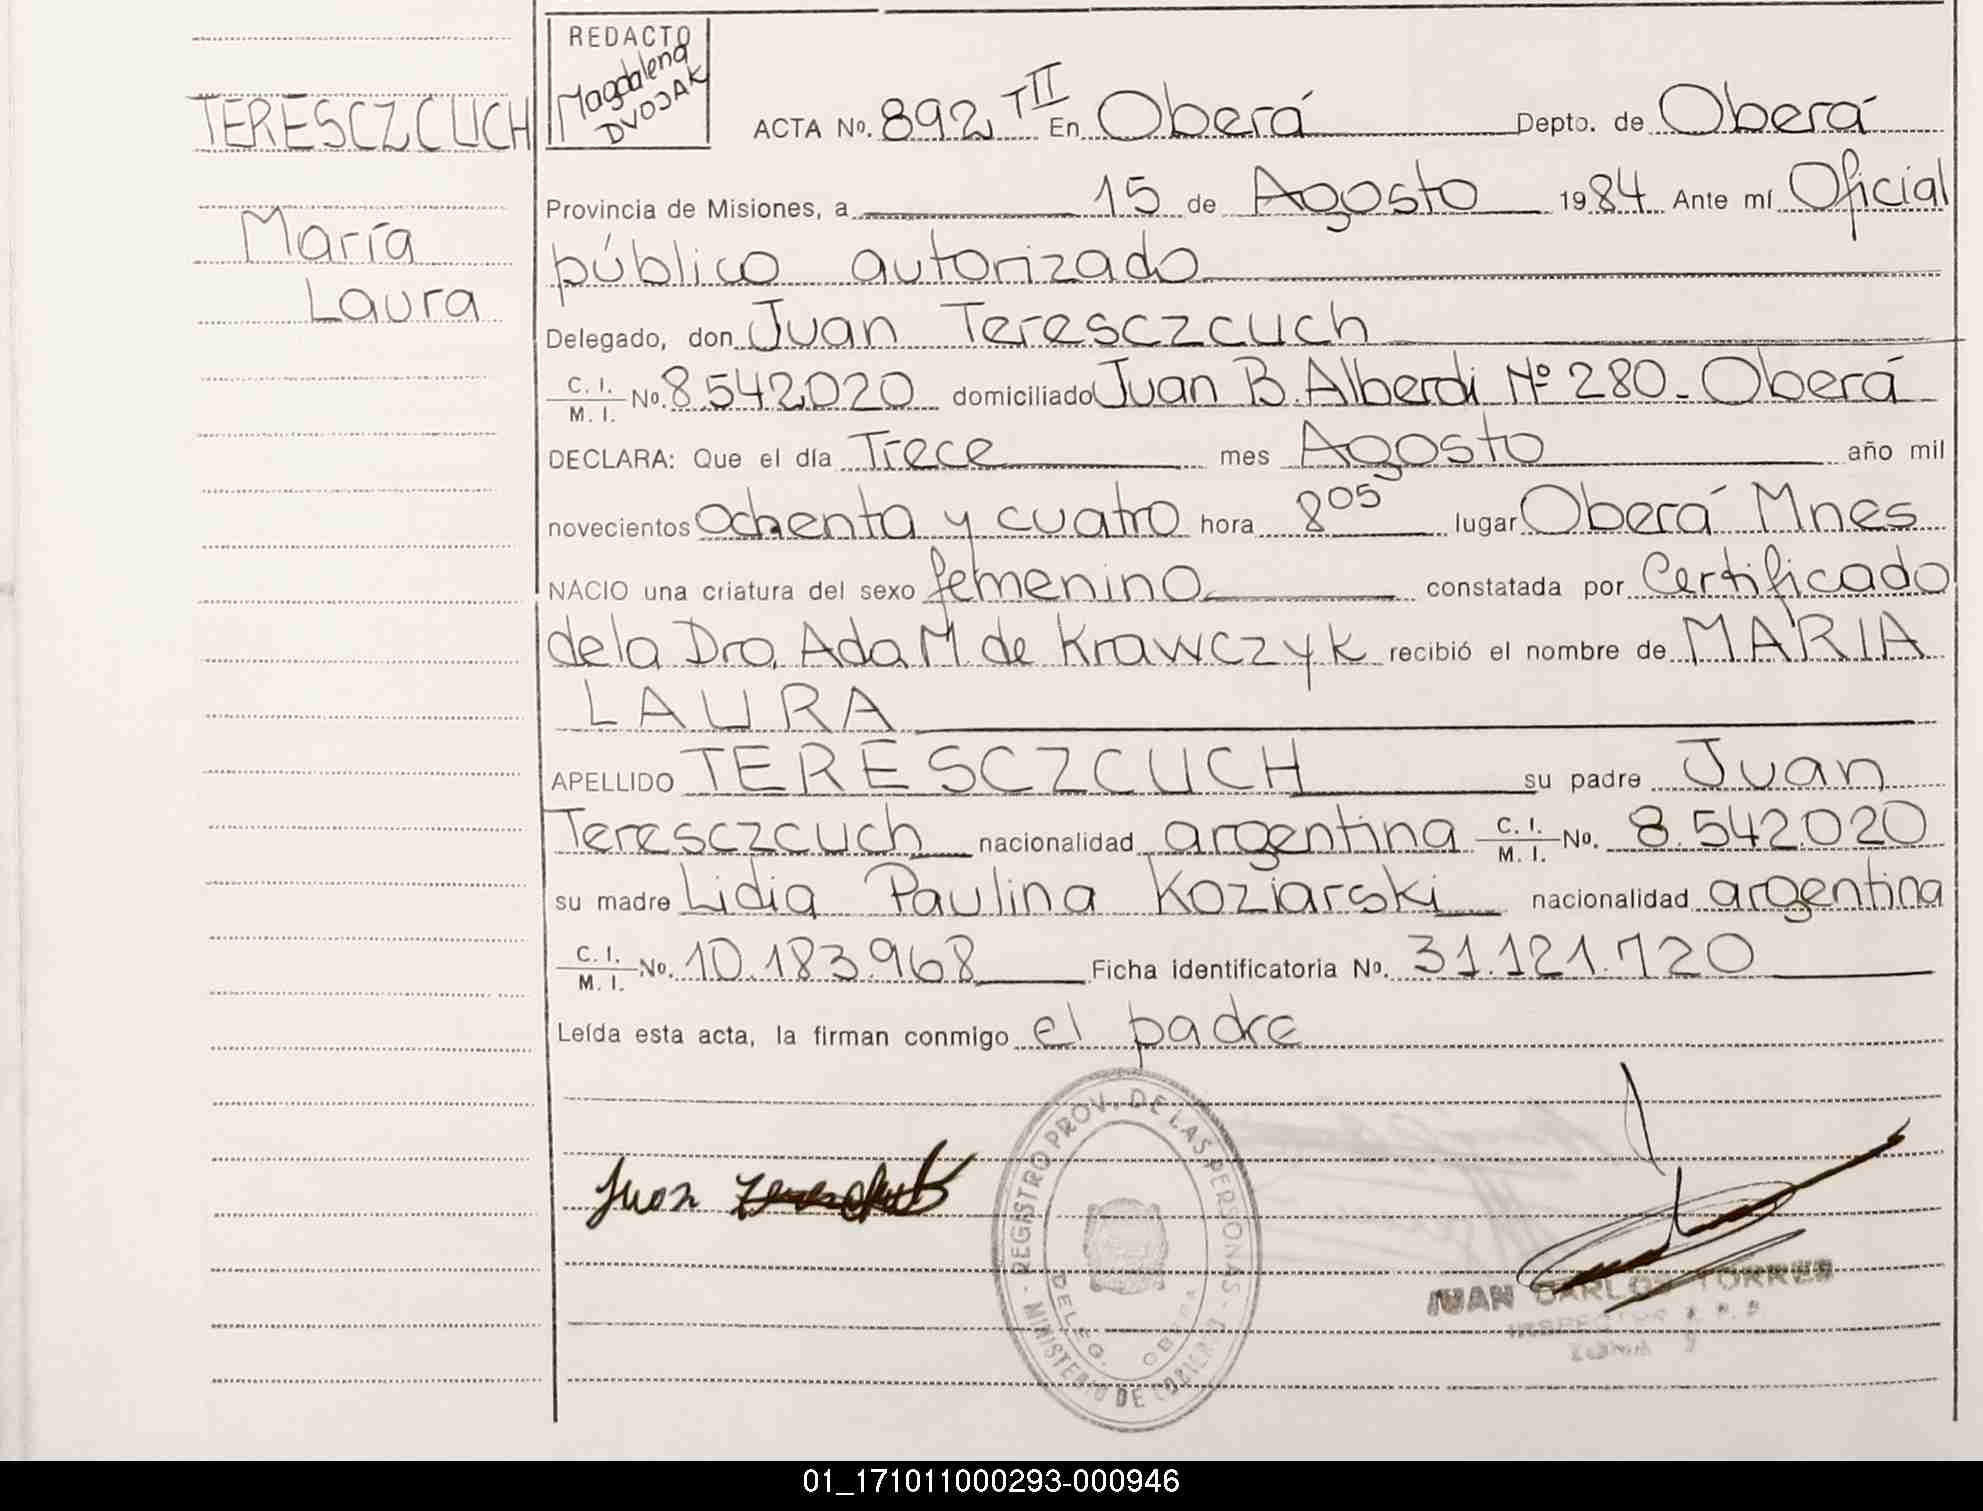 TERESCZCUCH
María
Laura
REDACTO
Magdalena
DVOJAK
ACTA No. 892 T II En Oberá Depto. de Oberá
Provincia de Misiones, a 15 de Agosto 1984 Ante mí Oficial
público autorizado
Delegado, don Juan Teresczcuch
C. I. / M. I. No. 8.542.020 domiciliado Juan B. Alberdi Nº 280 - Oberá
DECLARA: Que el día Trece mes Agosto año mil
novecientos ochenta y cuatro hora 8 05 lugar Oberá Mnes
NACIO una criatura del sexo femenino constatada por Certificado
de la Dra. Ada M. de Krawczyk recibió el nombre de MARIA
LAURA
APELLIDO TERESCZCUCH su padre Juan
Teresczcuch nacionalidad argentina C. I. / M. I. No. 8.542.020
su madre Lidia Paulina Koziarski nacionalidad argentina
C. I. / M. I. No. 10.183.968 Ficha identificatoria No. 31.121.720
Leída esta acta, la firman conmigo el padre
Juan
REGISTRO PROV. DE LAS PERSONAS - MINISTERIO DE GOBIERNO -
DELEG. OBERA
JUAN CARLOS TORRES
INSPECTOR
01_171011000293-000946